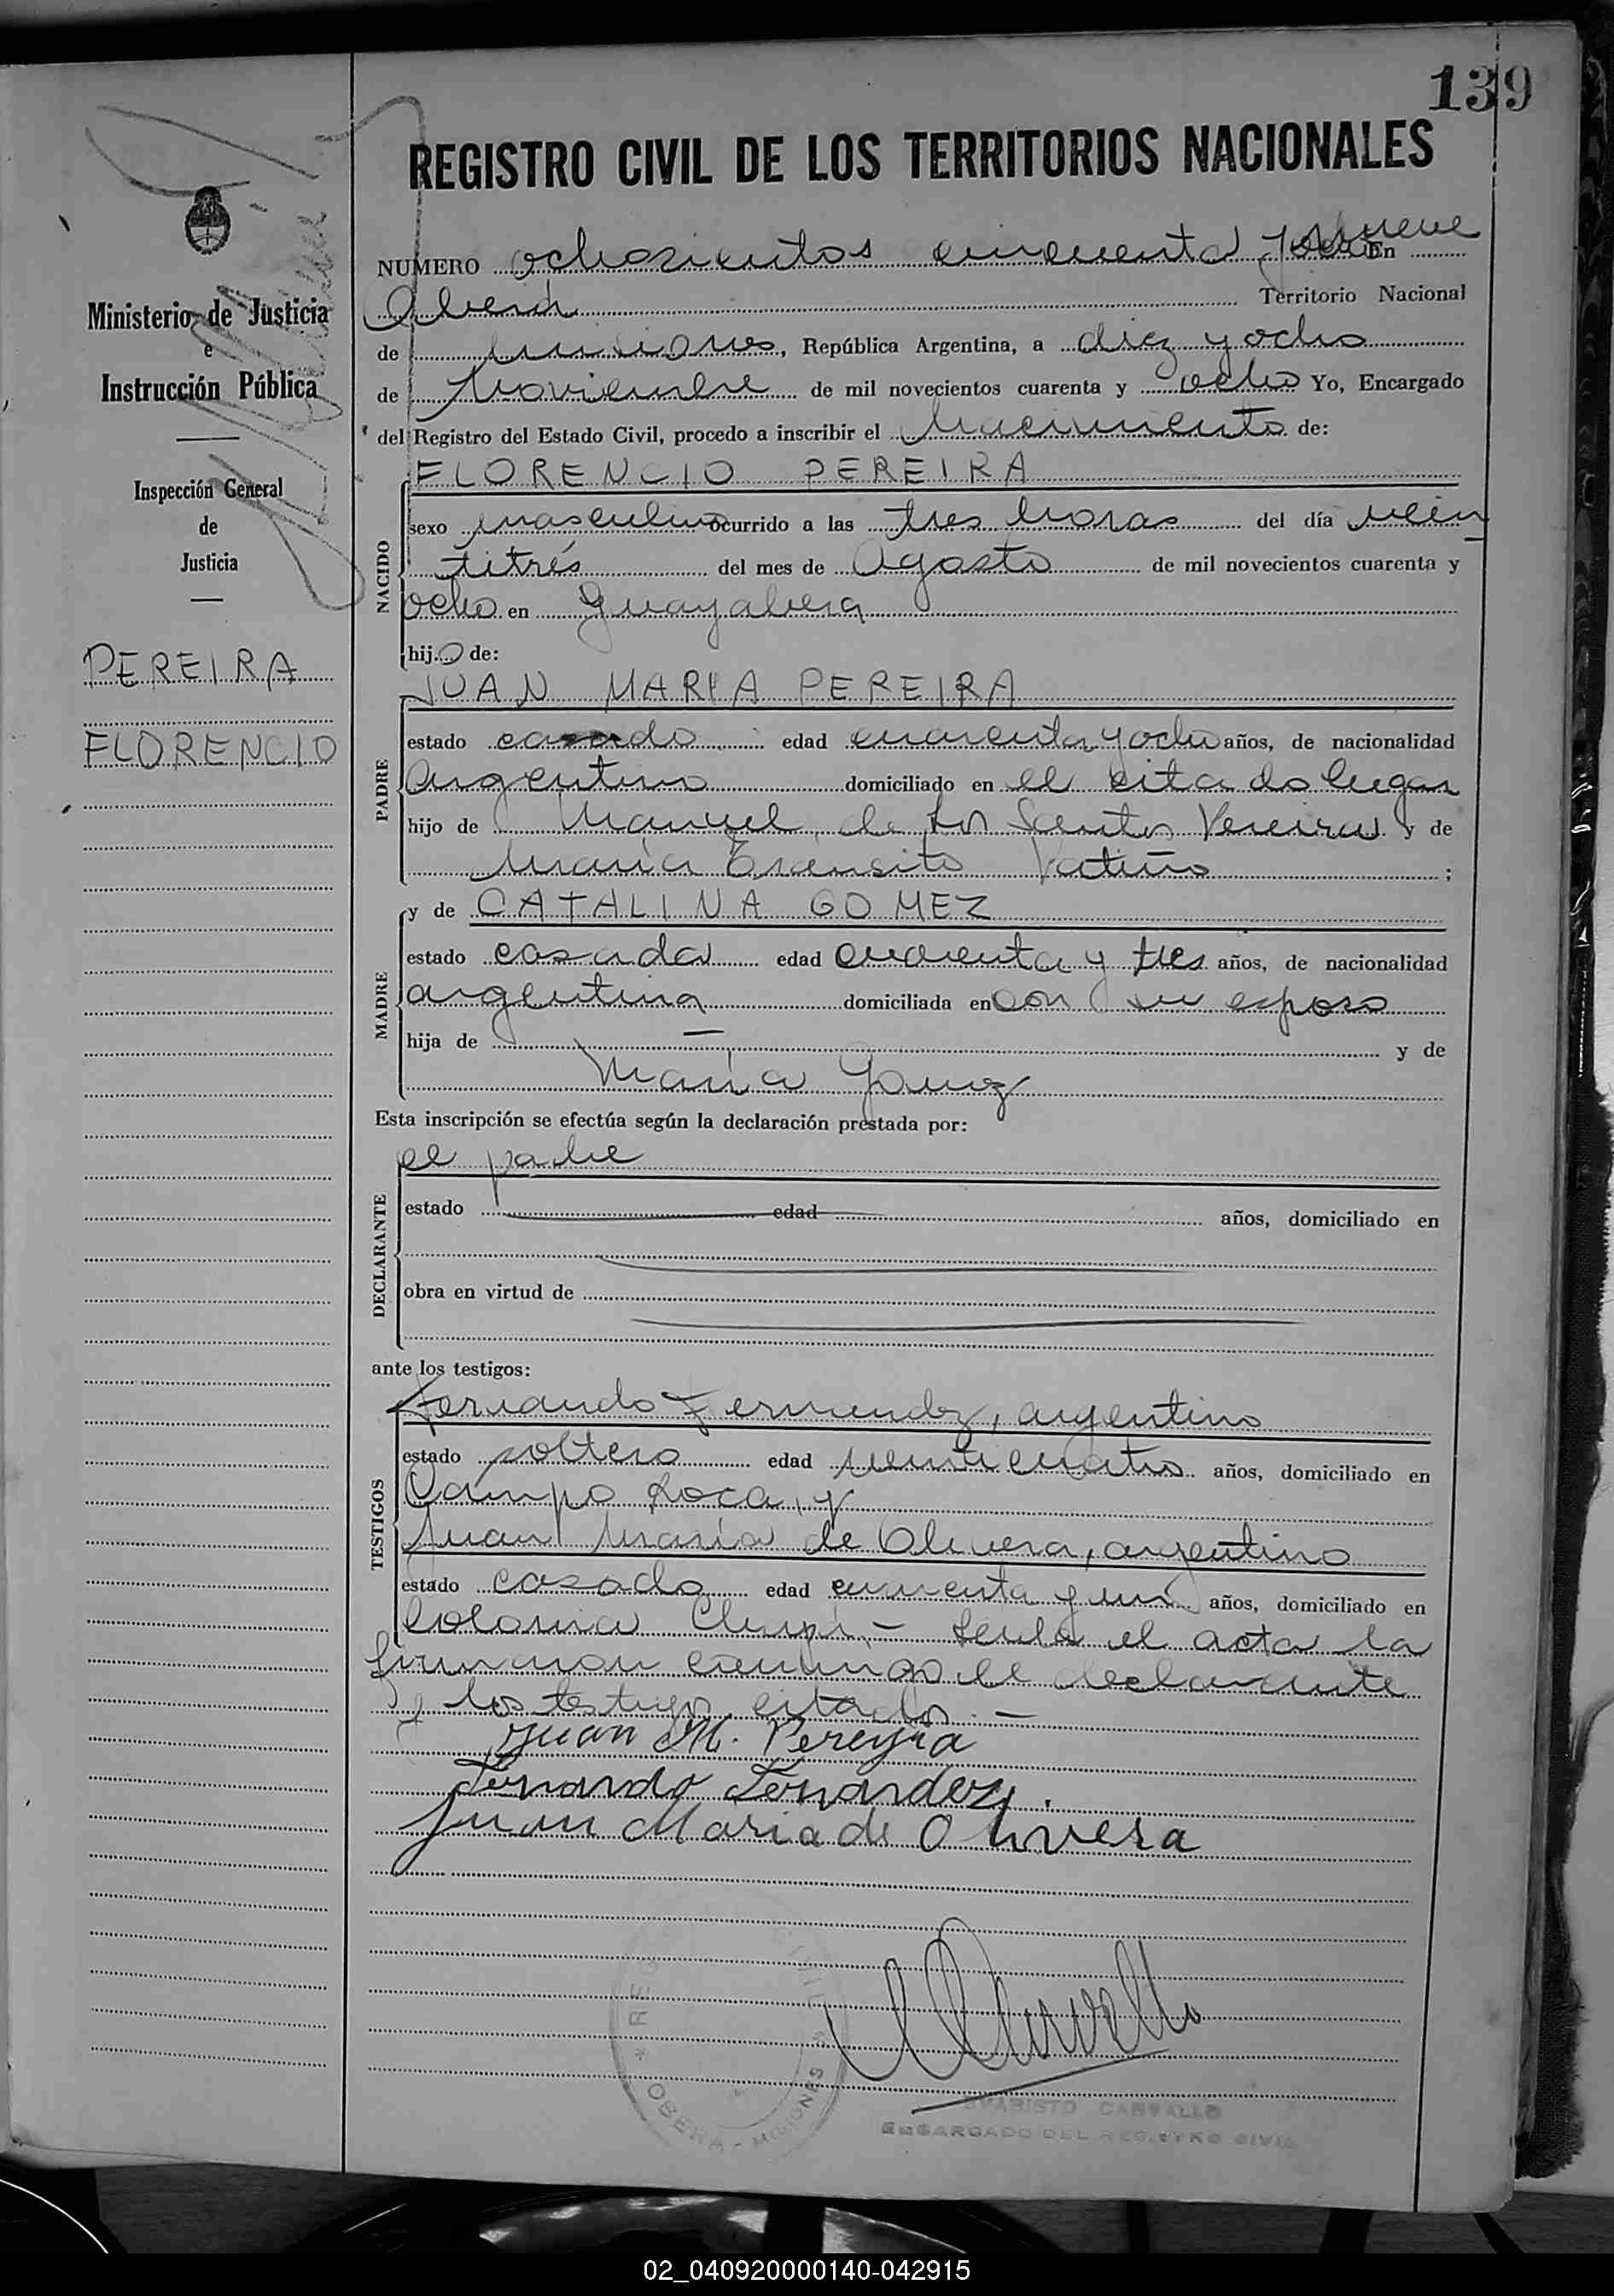 139
REGISTRO CIVIL DE LOS TERRITORIOS NACIONALES
NUMERO ochosientos cincuenta y nueve En
Oberá Territorio Nacional
de Misiones, República Argentina, a diez y ocho
de Noviembre de mil novecientos cuarenta y ocho Yo, Encargado
del Registro del Estado Civil, procedo a inscribir el Nacimiento de:
FLORENCIO PEREIRA
NACIDO
sexo masculino ocurrido a las tres horas del día vein
titrés del mes de Agosto de mil novecientos cuarenta y
ocho en Guayabera
hijo de:
JUAN MARIA PEREIRA
PADRE
estado casado edad cuarenta y ocho años, de nacionalidad
argentino domiciliado en el citado lugar
hijo de Manuel de los Santos Pereira y de
María Tránsito Patiño ;
y de CATALINA GOMEZ
MADRE
estado casada edad cuarenta y tres años, de nacionalidad
argentina domiciliada en con su esposo
hija de — y de
María Gomez
Esta inscripción se efectúa según la declaración prestada por:
el padre
DECLARANTE
estado edad años, domiciliado en
obra en virtud de
ante los testigos:
Fernando Fernandez, argentino
TESTIGOS
estado soltero edad veinticuatro años, domiciliado en
Campo Roca, y
Juan María de Olivera, argentino
estado casado edad cuarenta y un años, domiciliado en
Colonia Chapá.- Leida el acta la
firmaron conmigo el declarante
y los testigos citados.-
Juan M. Pereyra
Fernando Fernandez.
Juan Maria de Olivera
* REG CIVIL * OBERA - MISIONES
EVARISTO CARVALLO
ENCARGADO DEL REGISTRO CIVIL
Ministerio de Justicia
e
Instrucción Pública
Inspección General
de
Justicia
PEREIRA
FLORENCIO
02_040920000140-042915